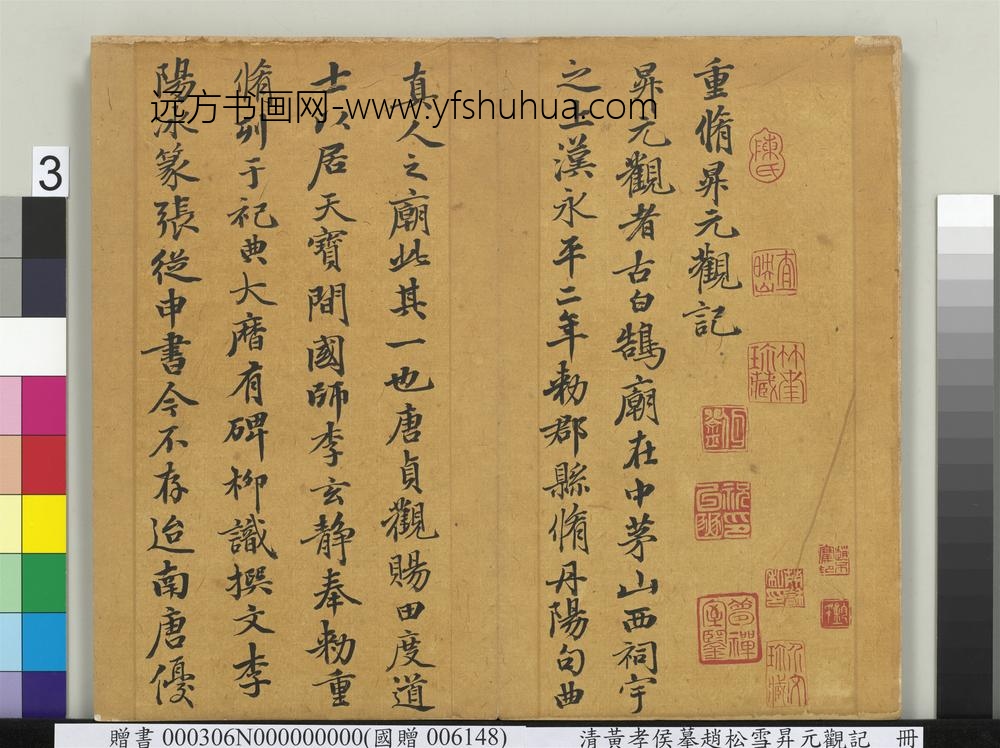 重脩昇元觀記
昇元觀者古白鵠廟在中茅山西祠宇
之上漢永平二年勅郡縣脩丹陽句曲
真人之廟此其一也唐貞觀賜田度道
士以居天寶間國師李玄静奉勅重
脩列于祀典大曆有碑柳識撰文李
陽冰篆張從申書今不存迨南唐優
陳氏
珍藏
远方书画网-www.yfshuhua.com
3
贈書 000306N000000000(國贈 006148)
清黃孝侯摹趙松雪昇元觀記 冊